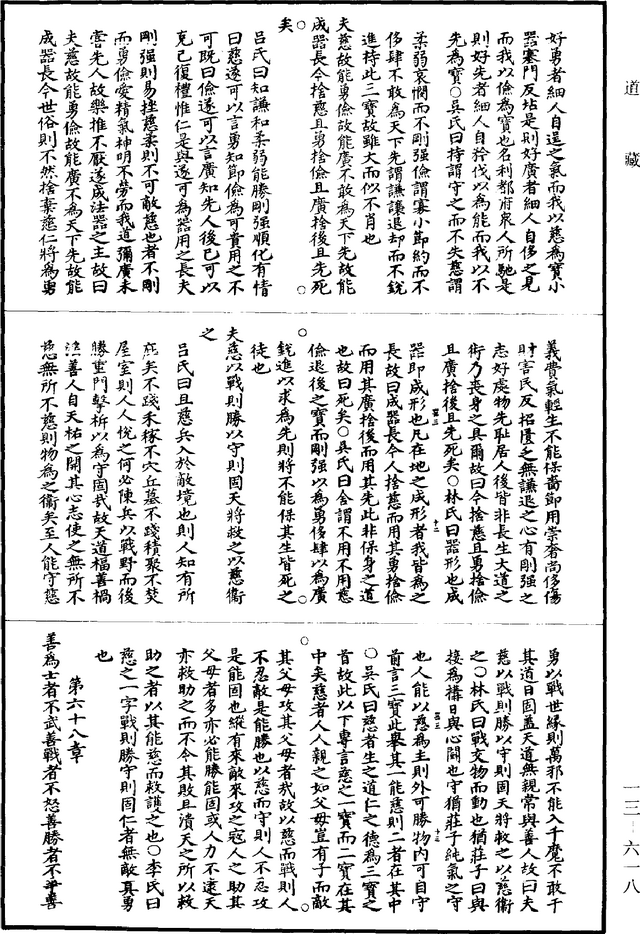 道藏
好勇者細人自逞之氣而我以慈為寶小
器塞門反坫是則好廣者細人自侈之見
而我以儉為寶也名利都府眾人所馳是
則好先者細人自矜伐以為能而我以不
先為寶○吳氏曰持謂守之而不失慈謂
柔弱哀憫而不剛強儉謂寡小節約而不
侈肆不敢為天下先謂謙讓退却而不銳
進持此三寶故雖大而似不肖也
夫慈故能勇儉故能廣不敢為天下先故能
成器長今捨慈且勇捨儉且廣捨後且先死
○矣
呂氏曰知謙和柔弱能勝剛強順化有情
曰慈遂可以言勇知節儉為可貴用之不
可既曰儉遂可以言廣知先人後己可以
克己復禮惟仁是與遂可為器用之長夫
剛強則易挫慈柔則不可敵慈也者不剛
而勇儉愛精氣神明不勞而我道彌廣未
嘗先人故樂推不厭遂成法器之主故曰
夫慈故能勇儉故能廣不為天下先故能
成器長今世俗則不然捨棄慈仁將為勇
義貴氣輕生不能保嗇節用崇奢尚侈傷
財害民反招匱乏無謙退之心有剛強之
志好處物先恥居人後皆非長生大道之
術乃喪身之具爾故曰今捨慈且勇捨儉
且廣捨後且先死矣○林氏曰器形也成
器即成形也凡在地之成形者我皆為之
長故曰成器長今人捨慈而用其勇捨儉
而用其廣捨後而用其先此非保身之道
也故曰死矣○吳氏曰舍謂不用不用慈
儉退後之寶而剛強以為勇侈肆以為廣
銳進以求為先則將不能保其生皆死之
○徒也
夫慈以戰則勝以守則固天將救之以慈衛
之
呂氏曰且慈兵入於敵境也則人知有所
庇矣不踐禾稼不穴丘墓不踐積聚不焚
屋室則人人悅之何必陳兵以戰野而後
勝重門擊柝以為守固哉故天道福善禍
淫善人自天祐之開其心志使之無所不
慈無所不慈則物為之衛矣至人能守慈
勇以戰世緣則萬邪不能入千魔不敢干
其道日固蓋天道無親常與善人故曰夫
慈以戰則勝以守則固天將救之以慈衛
之○林氏曰戰交物而動也猶莊子曰與
接為構日與心鬪也守猶莊子純氣之守
也人能以慈為主則外可勝物內可自守
前言三寶此舉其一能慈則二者在其中
○吳氏曰慈者生之道仁之德為三寶之
首故此以下專言慈之一寶而二寶在其
中矣慈者人人親之如父母豈有子而敵
其父母攻其父母者哉故以慈而戰則人
不忍敵是能勝也以慈而守則人不忍攻
是能固也縱有來敵來攻之寇人之助其
父母者多亦必能勝能固或人力不逮天
亦救助之而不令其敗且潰天之所以救
助之者以其能慈而救護之也○李氏曰
慈之一字戰則勝守則固仁者無敵真勇
也
第六十八章
善為士者不武善戰者不怒善勝者不爭善
一三—六一八